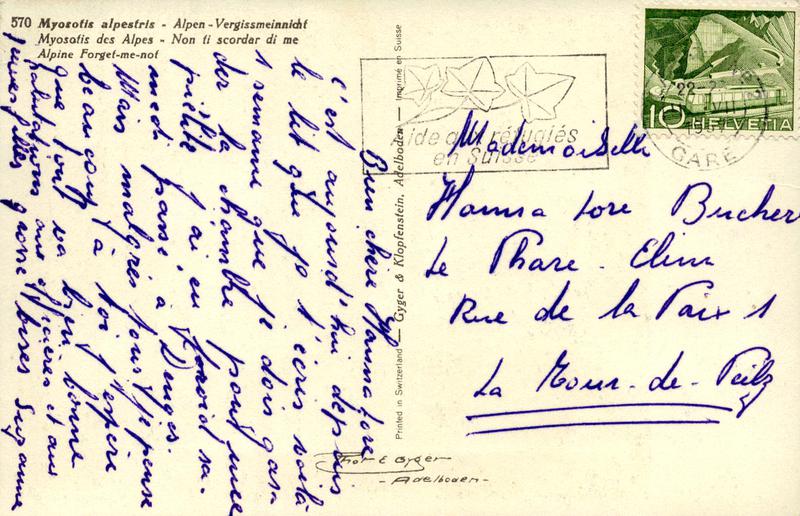 570 Myosotis alpestris - Alpen-Vergissmeinnicht
Myosotis des Alpes - Non ti scordar di me
Alpine Forget-me-not
Bien chère Hanna Lore
c'est aujourd'hui depuis
le lit que je t'écris voilà
1 semaine que je dois gar
der la chambre pour une
j'ai eu froid sa-
medi passé à Denges.
Mais malgrès tous je pense
beaucoup à toi j'espère
que tout va bien bonne
salutations aux et aux
jeunes filles grosse bises Suzanne
Printed in Switzerland — Gyger & Klopfenstein, Adelboden — Imprimé en Suisse
Phot E Gyger
- Adelboden -
Aide aux réfugiés
en Suisse
10 HELVETIA
22-
VII
GARE
Mademoiselle
Hanna Lore Bucher
Le Phare - Elim
Rue de la Paix 1
La Tour-de-Peilz